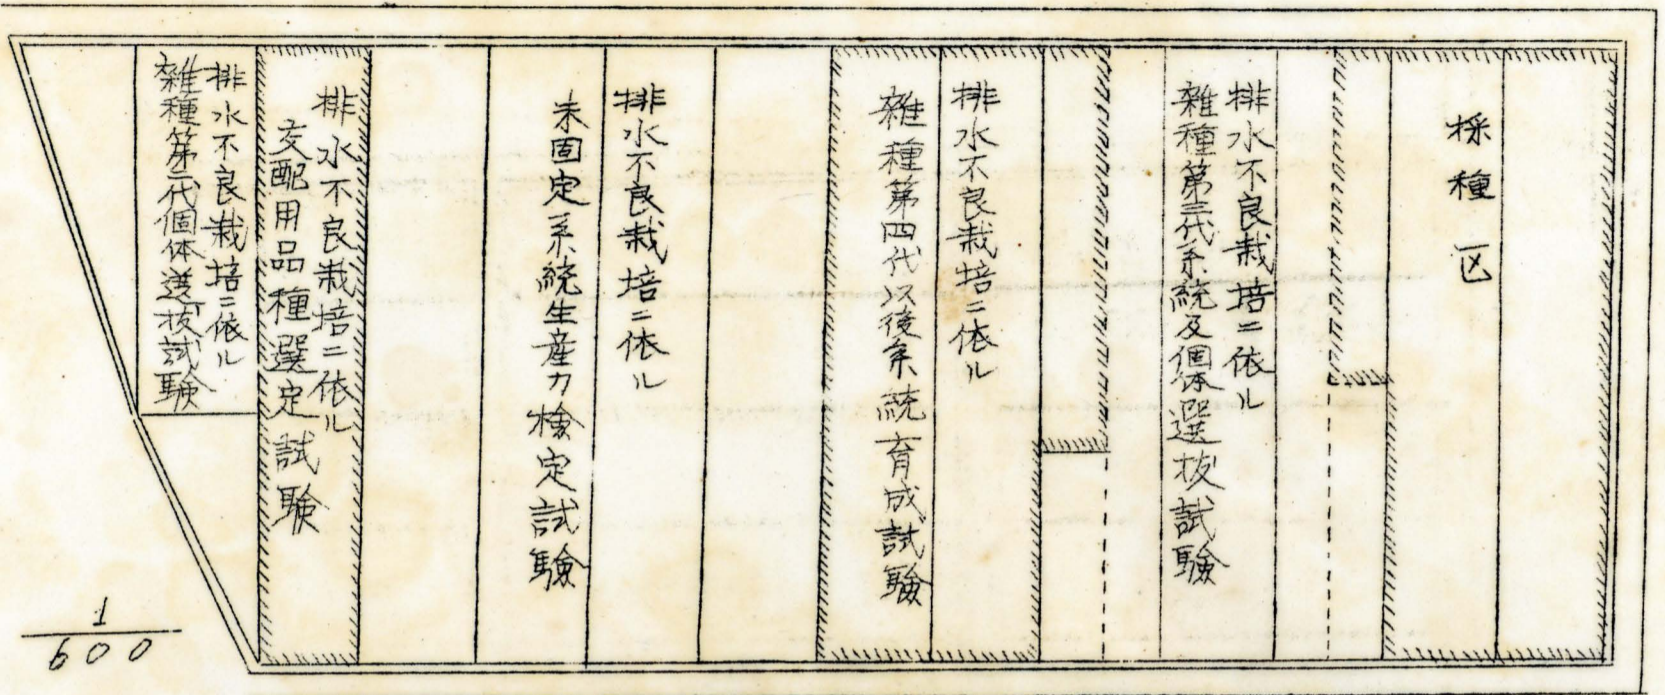 採種区
排水不良栽培ニ依ル
雑種第三代系統及個体選抜試験
排水不良栽培ニ依ル
雑種第四代以後系統育成試験
排水不良栽培ニ依ル
未固定系統生産力検定試験
排水不良栽培ニ依ル
交配用品種選定試験
排水不良栽培ニ依ル
雑種第二代個体選抜試験
1/600